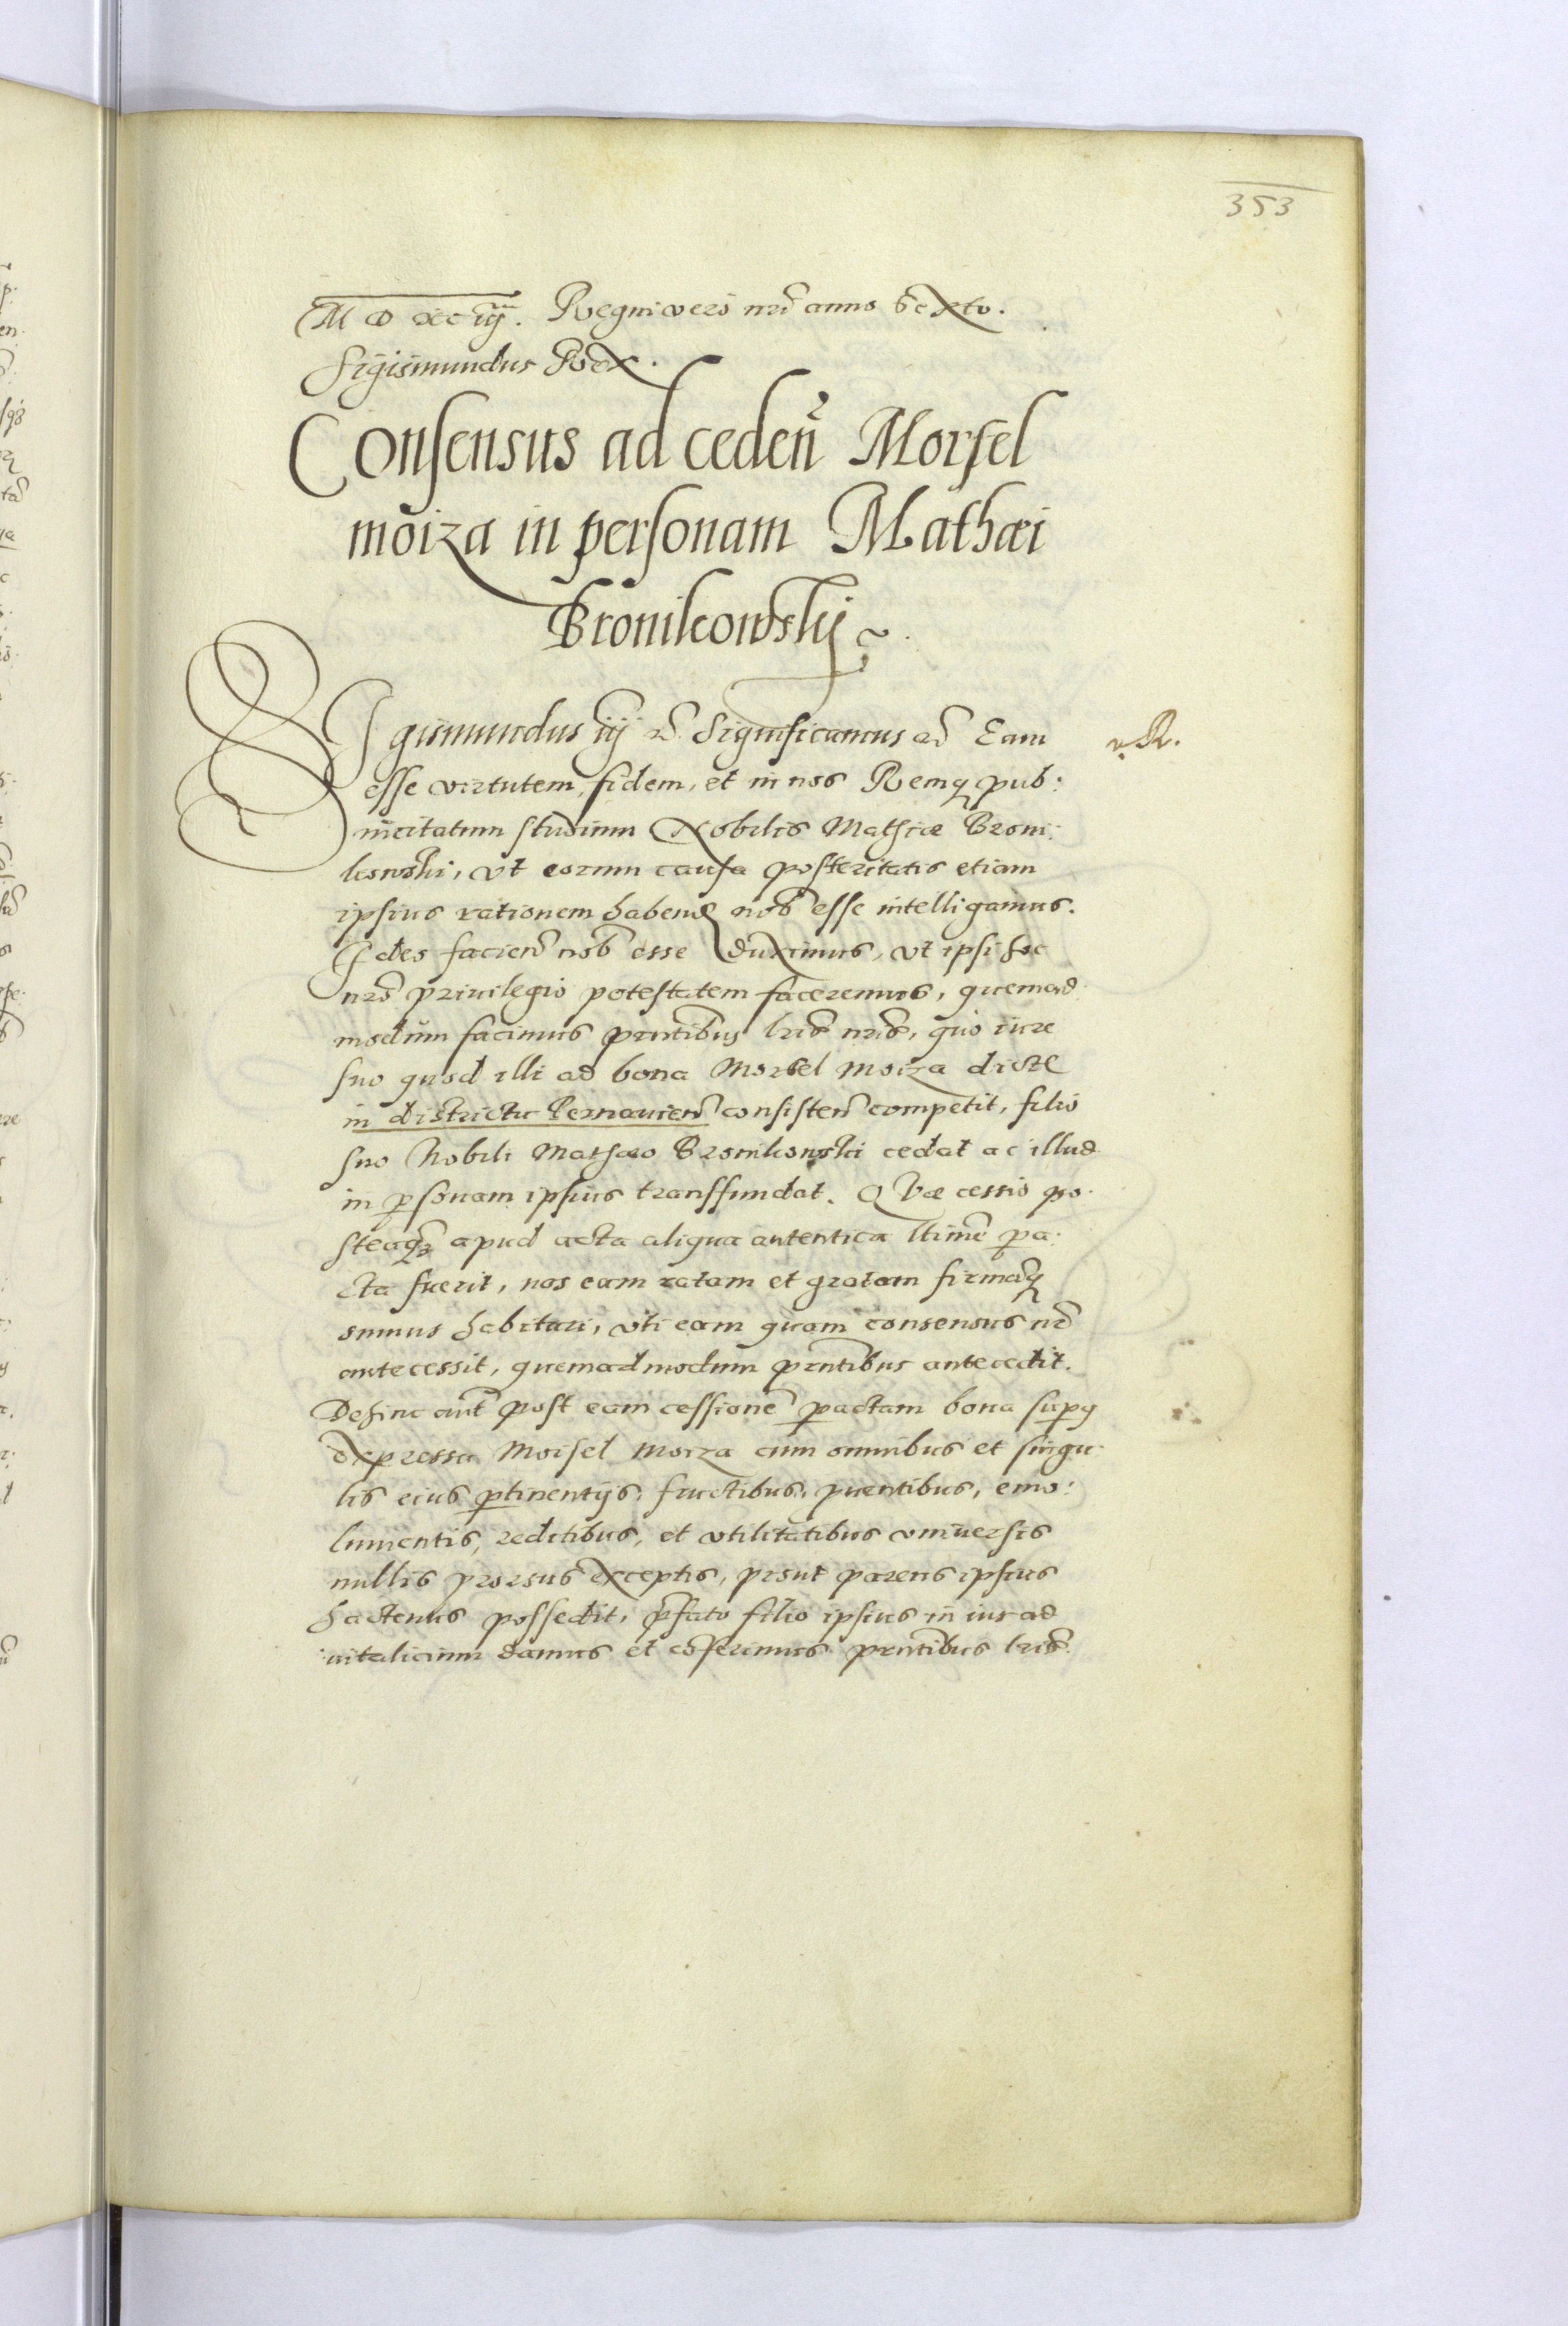 353
M D XC iij. Regni vero nri anno sexto.
Sigismundus Rex.
Consensus ad ceden Morsel
moiza in personam Mathæi
Bronikowskij
Sigismundus iij &c Significamus &c Eam
esse virtutem, fidem, et in nos Remq pub:
incitatum studium Nobilis Mathiæ Broni:
kowski, vt eorum causa posteritatis etiam
ipsius rationem habend nob esse intelligamus.
Ideo facien nob esse duximus, vt ipsi hoc
nro priuilegio potestatem faceremus, quemad
modum facimus prntibus lris nris, quo iure
suo quod illi ad bona Morsel Moiza dicta
in districtu Pernauien consisten competit, filio
suo Nobili Mathæo Bronikowski cedat ac illud
in psonam ipsius transfundat. Quæ cessio po
steaq apud acta aliqua autentica ltime pa
cta fuerit, nos eam ratam et gratam firmaq
sumus habituri, vti eam quam consensus nr
antecessit, quemadmodum prntibus antecedit.
Dehinc aut post eam cessione pactam bona supq
expressa Moisel Moiza cum omnibus et singu
lis eius ptinentijs, fructibus, puentibus, emo:
lumentis, reditibus, et vtilitatibus vniuersis
nullis prorsus exceptis, prout parens ipsius
hactenus possedit, pfato filio ipsius in ius ad
uitalicium damus et coferimus prntibus lris.